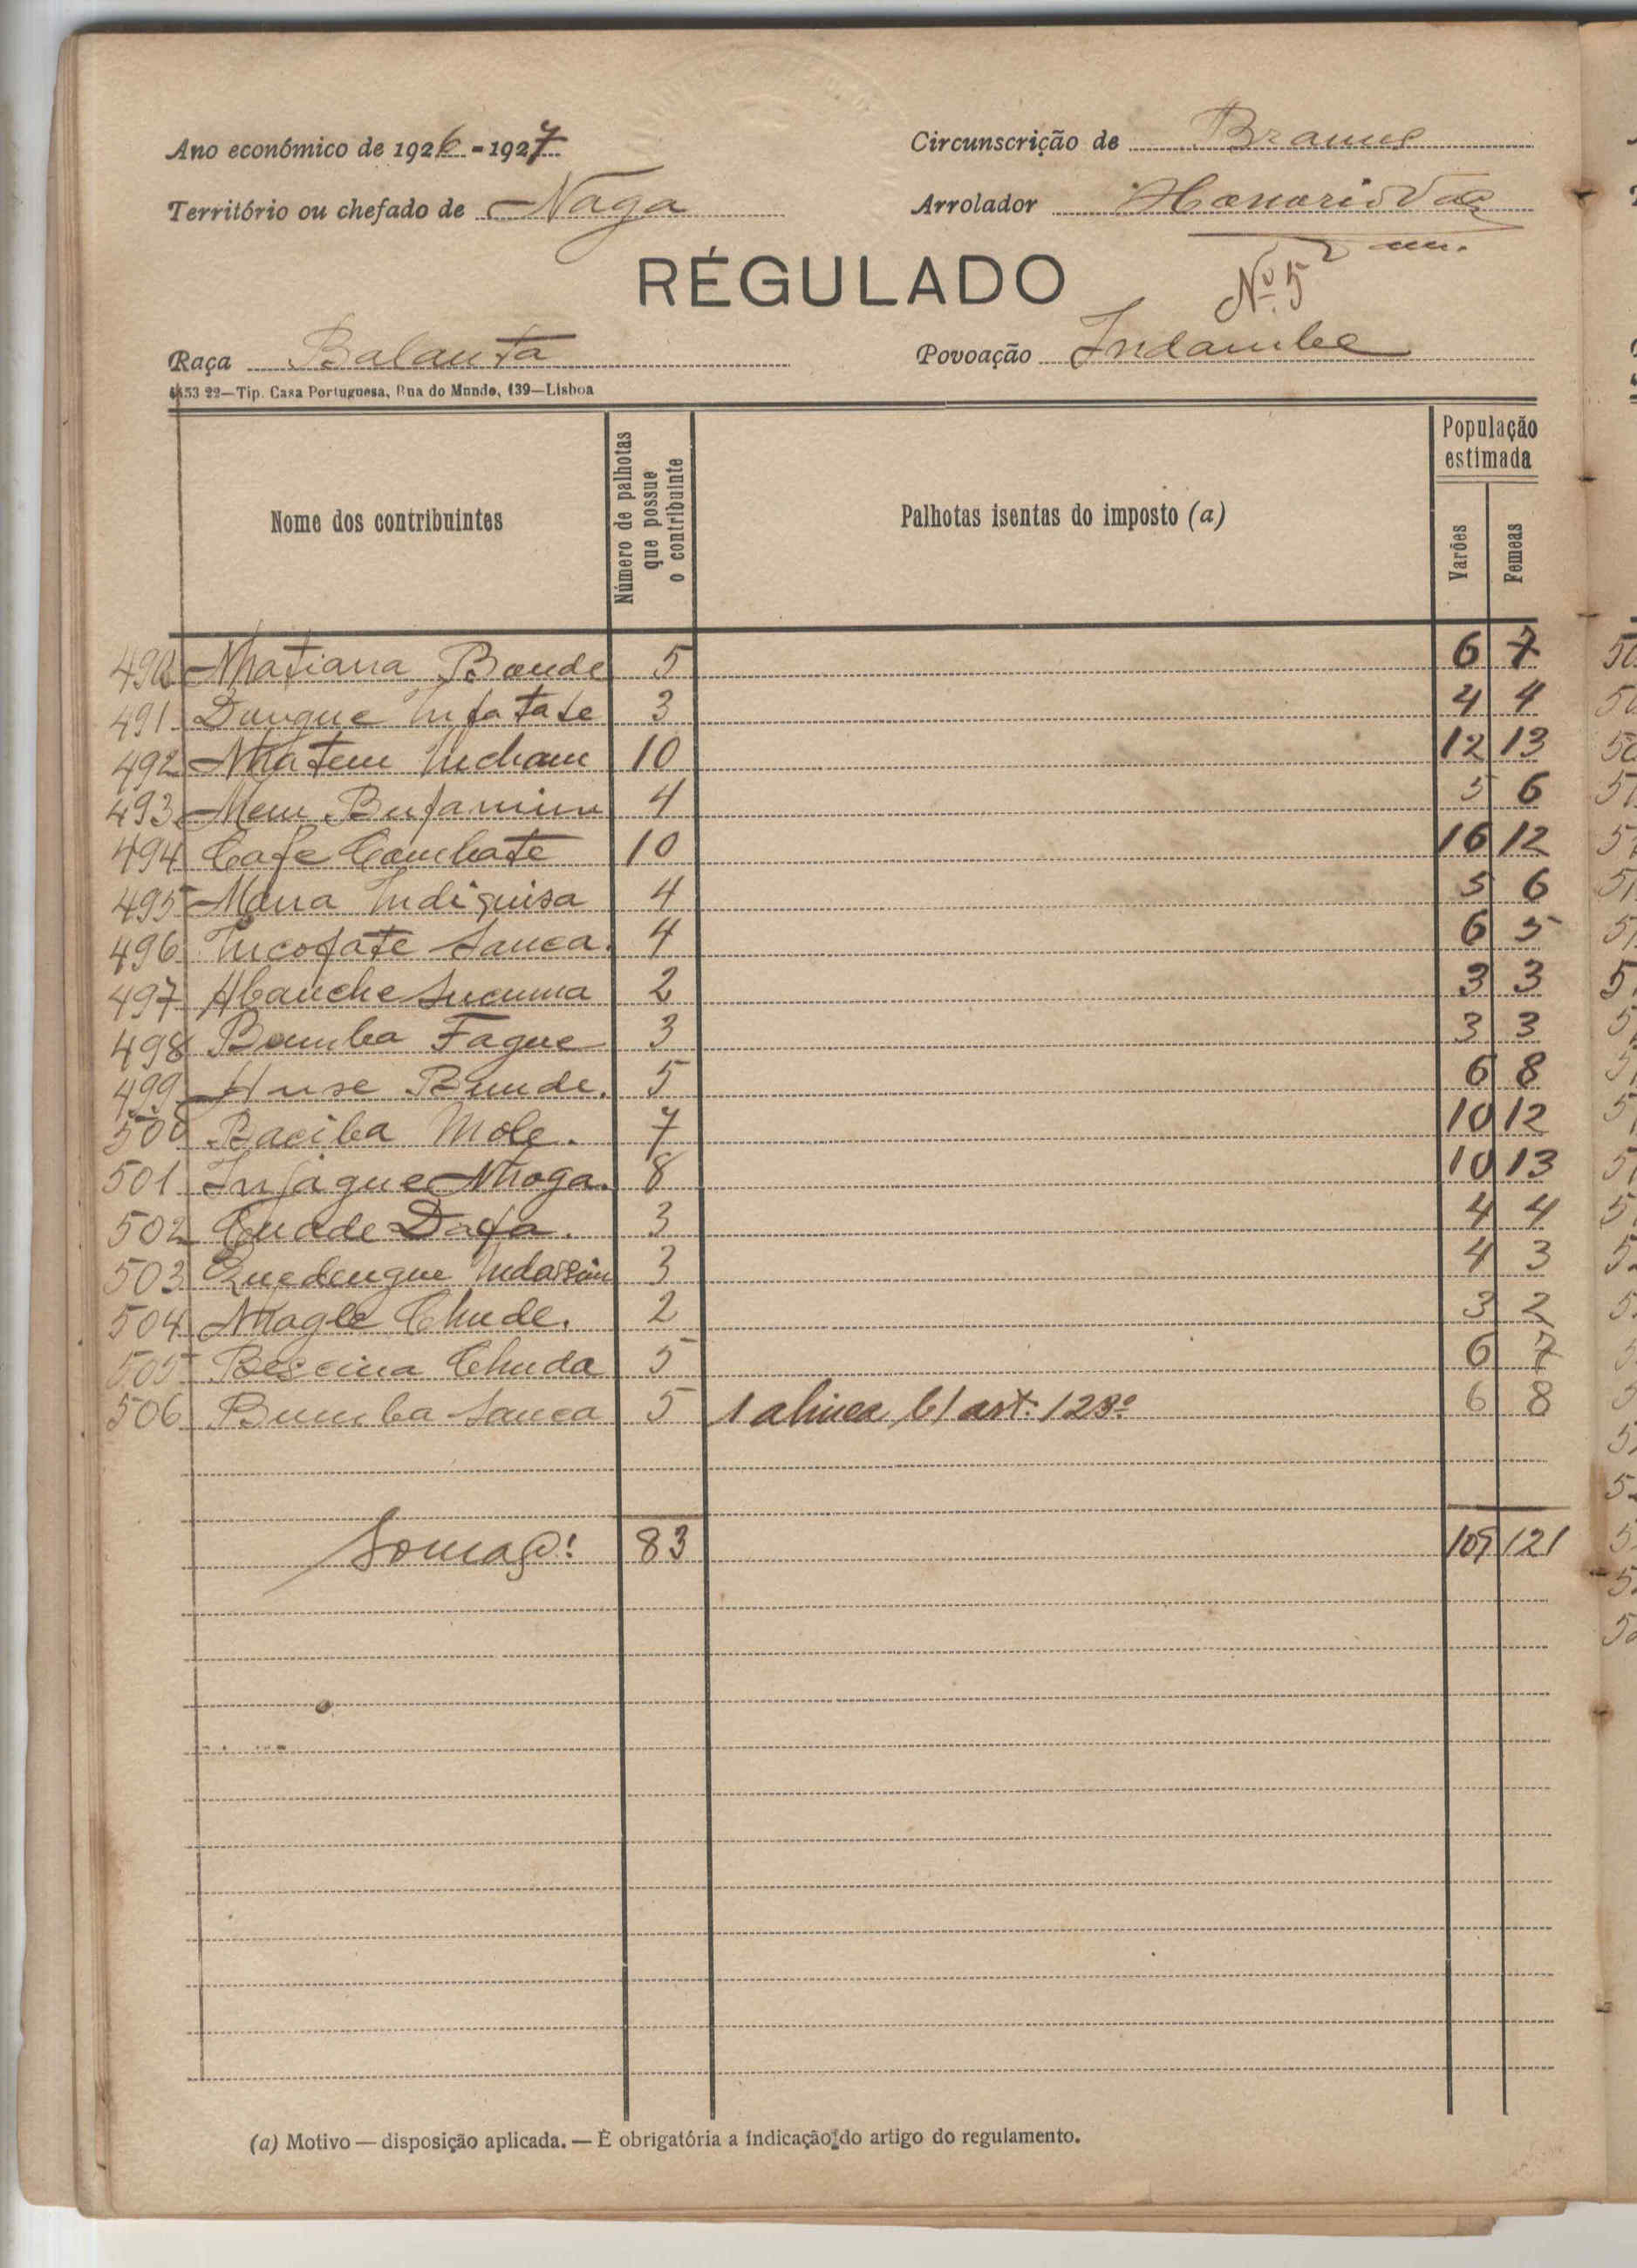 Ano económico de 1926-1927
Circunscrição de Brames
Território ou chefado de Naga
Arrolador Honorio Vaz
RÉGULADO
Nº 5
Raça Balanta
Povoação Indambe
22—Tip. Casa Portuguesa, Rua do Mundo, 139—Lisboa
Nome dos contribuintes
Número de palhotas que possue o contribuinte
Palhotas isentas do imposto (a)
População estimada
Varões
Femeas
490 Nhatiana Bonde 5 6 7
491 Dungue Infatate 3 4 4
492 Nhatem Incham 10 12 13
493 Mem Bufamim 4 5 6
494 Cafe Combate 10 16 12
495 Mana Indiquisa 4 5 6
496 Incofate Sanca. 4 6 5
497 Abanche Sucuma 2 3 3
498 Bomba Fague 3 3 3
499 Anse Bunde. 5 6 8
500 Baciba Mole. 7 10 12
501 Infague Nhoga. 8 10 13
502 Cuade Dafa. 3 4 4
503 Quedengue 3 4 3
504 Nhagle Chude. 2 3 2
505 Bescina Chuda 5 6 7
506 Bumba Sanca 5 1 alinea b/ art. 123º 6 8
Somaçõ: 83 109 121
(a) Motivo — disposição aplicada. — È obrigatória a indicação do artigo do regulamento.